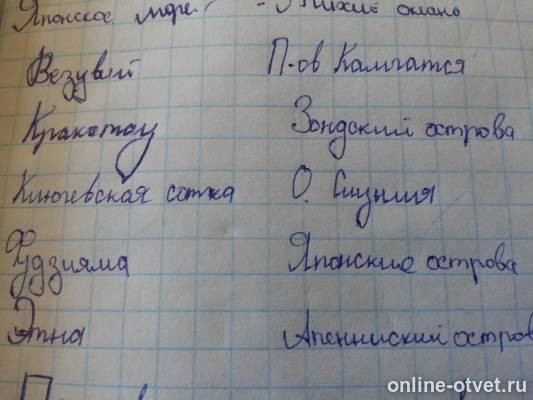 Японское море. - Тихий океан
Везувий П-ов Камчатся
Кракатау Зондский острова
Ключевская сотка О. Сицилия
Фудзияма Японские острова
Этна Апеннинский остров
online-otvet.ru